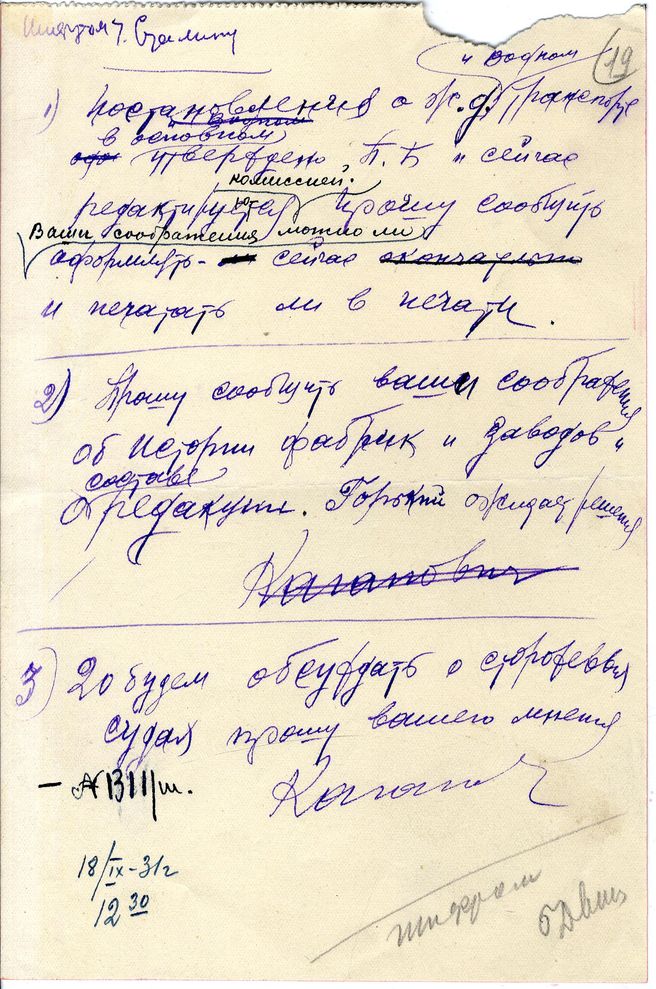 Шифром т. Сталину
19
и водном
1) Постановления о ж.д. транспорте
в основном
утверждено П.Б и сейчас
комиссией.
редактируется прошу сообщить
Ваши соображения можно ли
оформлять сейчас окончательно
и печатать ли в печати.
2) Прошу сообщить ваши соображения
об истории фабрик и заводов и
составе
о редакции. Горький ожидает решения
Каганович
3) 20 будем обсуждать о
прошу вашего мнения
Каганович
– № 1311/ш.
18/IX–31г
12 30
шифром